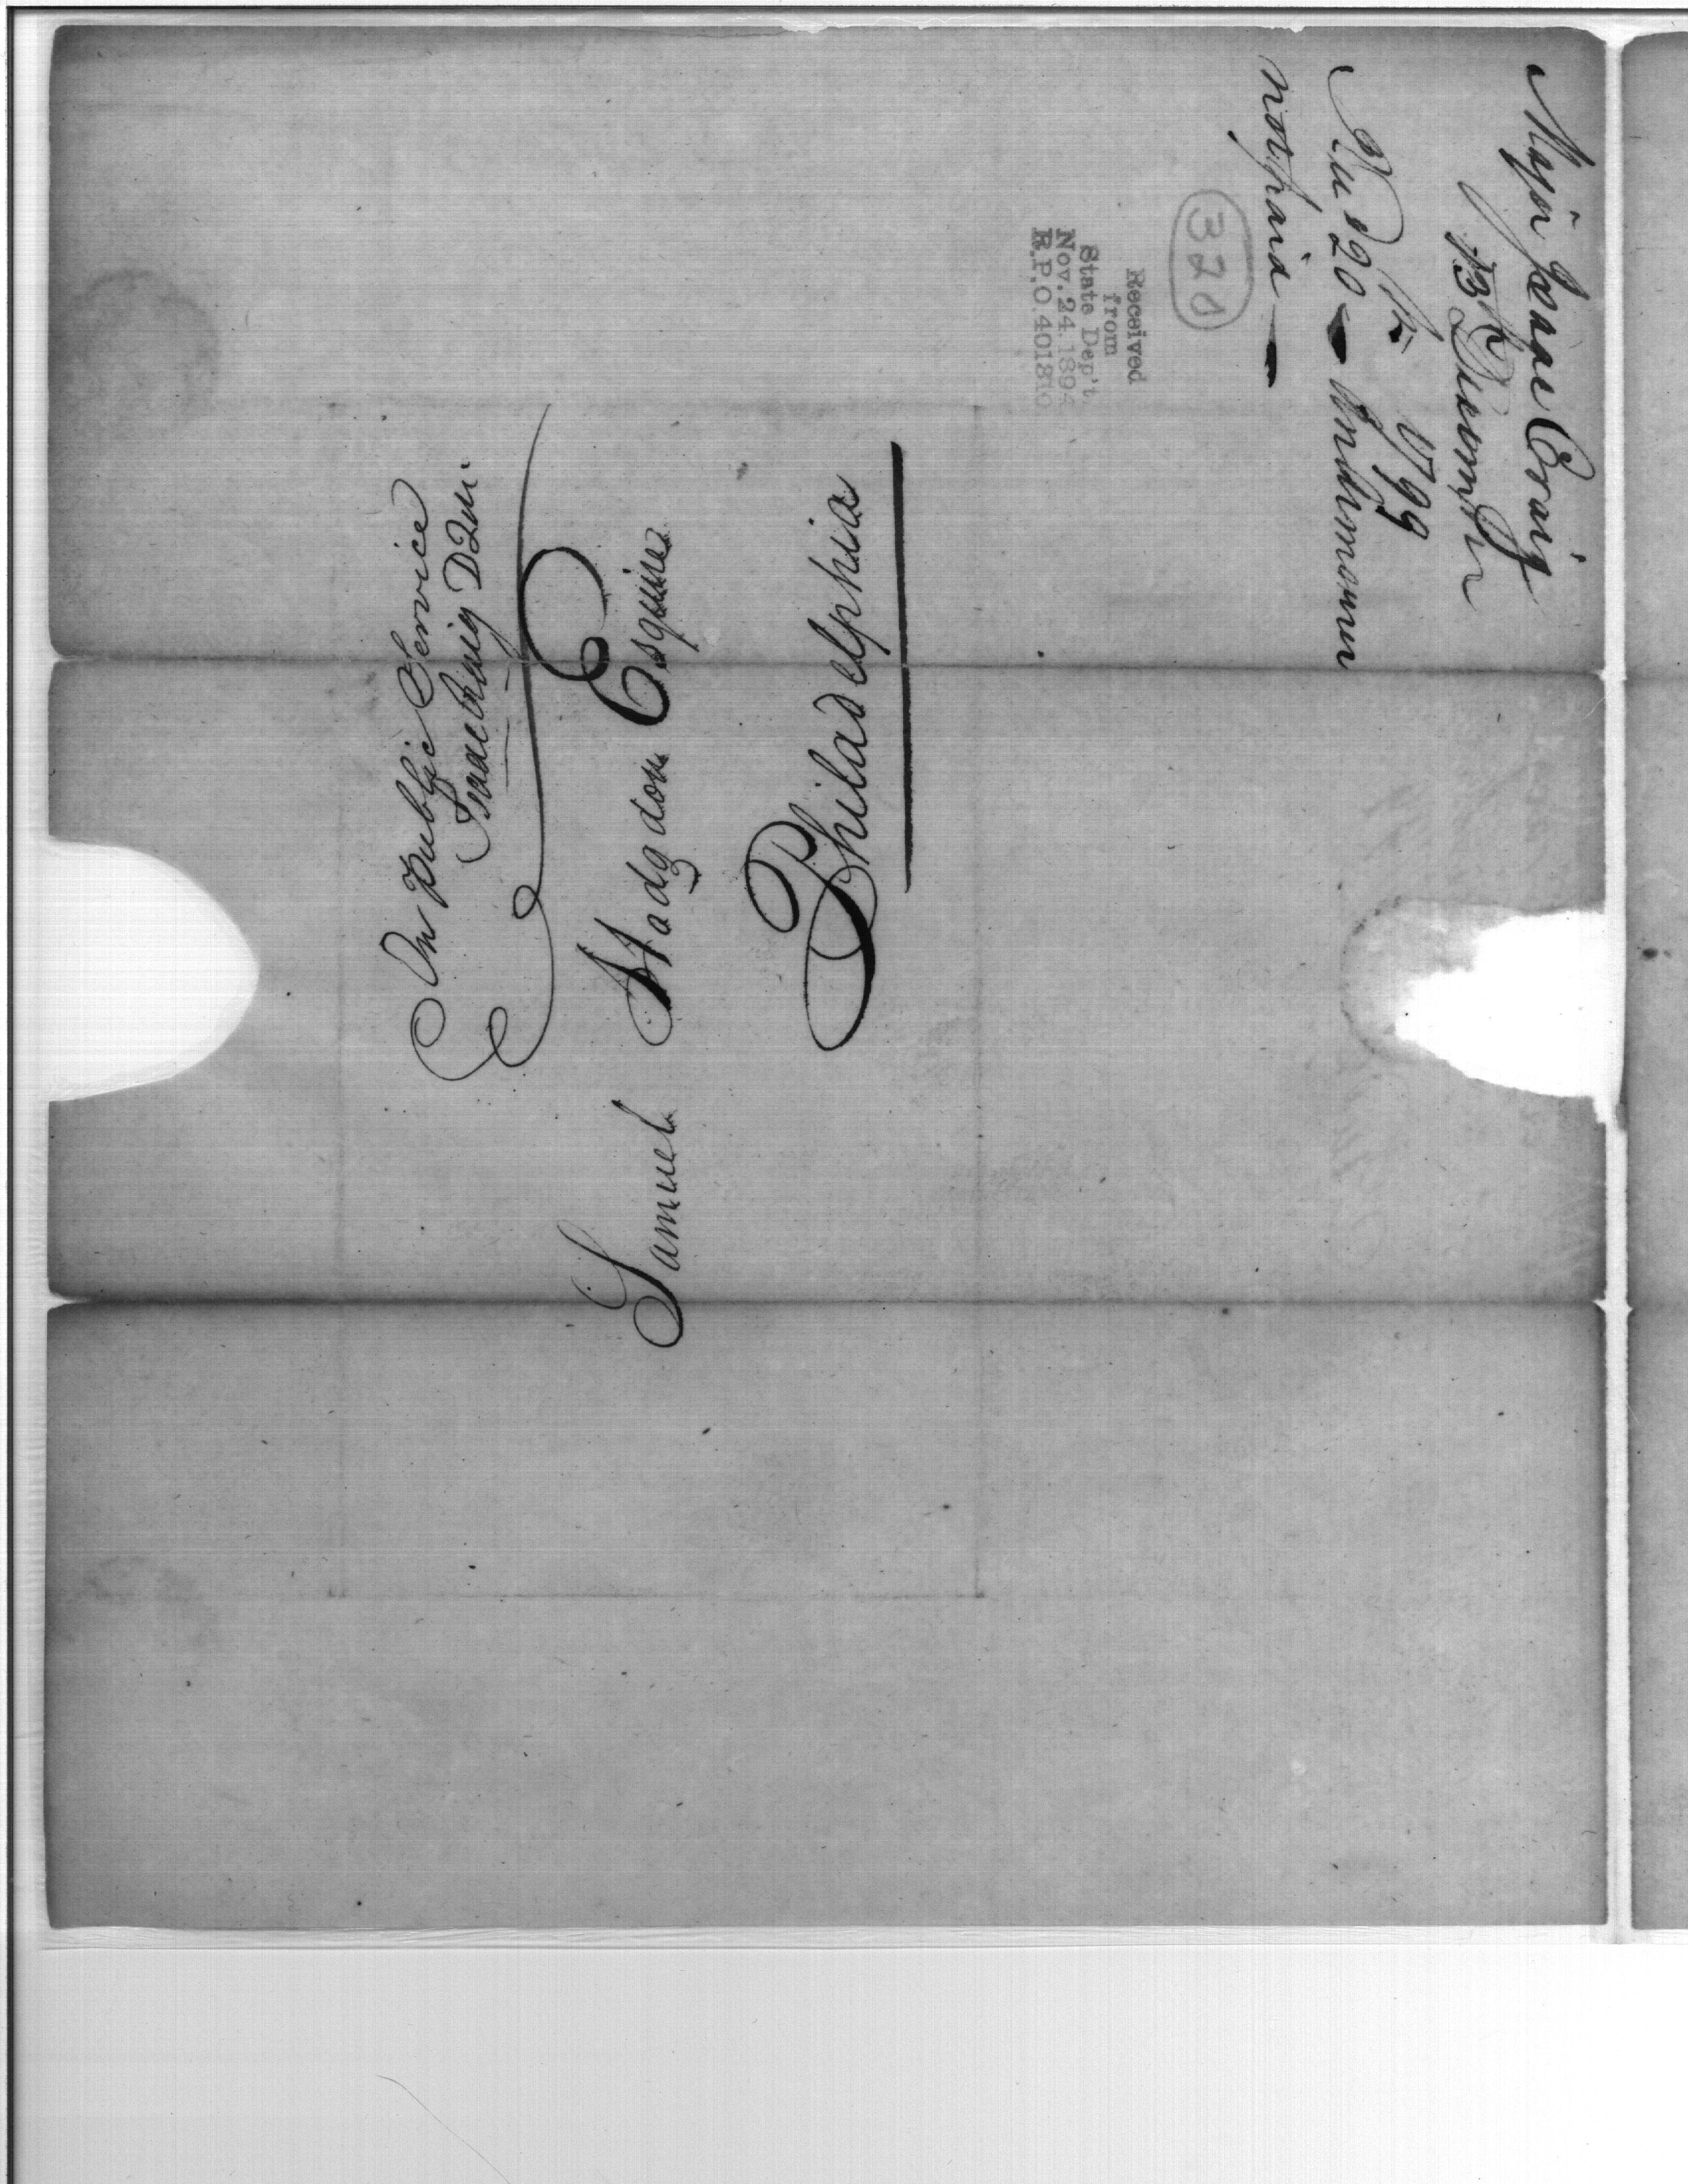 On public Service
Isaac Craig DQM.
Samuel Hodgdon Esquire
Philadelphia
Major Isaac Craig
13th Decemr
1799
Rec'd 20
not paid
320
Received
from
State Dep't
Nov. 24. 1894
R.P.O. 401810